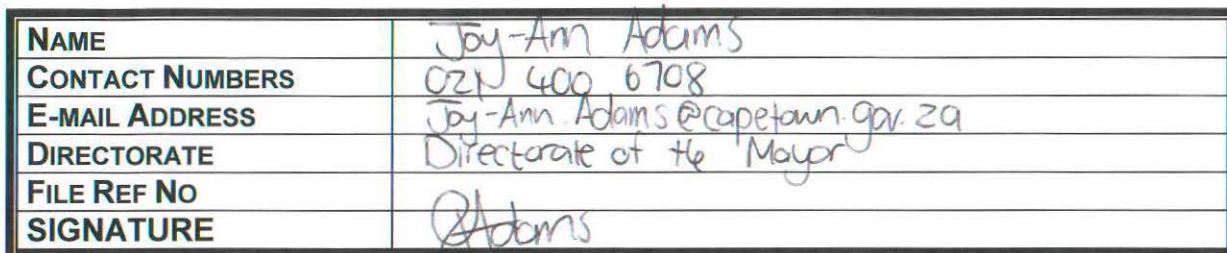 NAME Joy-Ann Adams
CONTACT NUMBERS 021 400 6708
E-MAIL ADDRESS Joy-Ann.Adams@capetown.gov.za
DIRECTORATE Directorate of the Mayor
FILE REF NO
SIGNATURE Adams